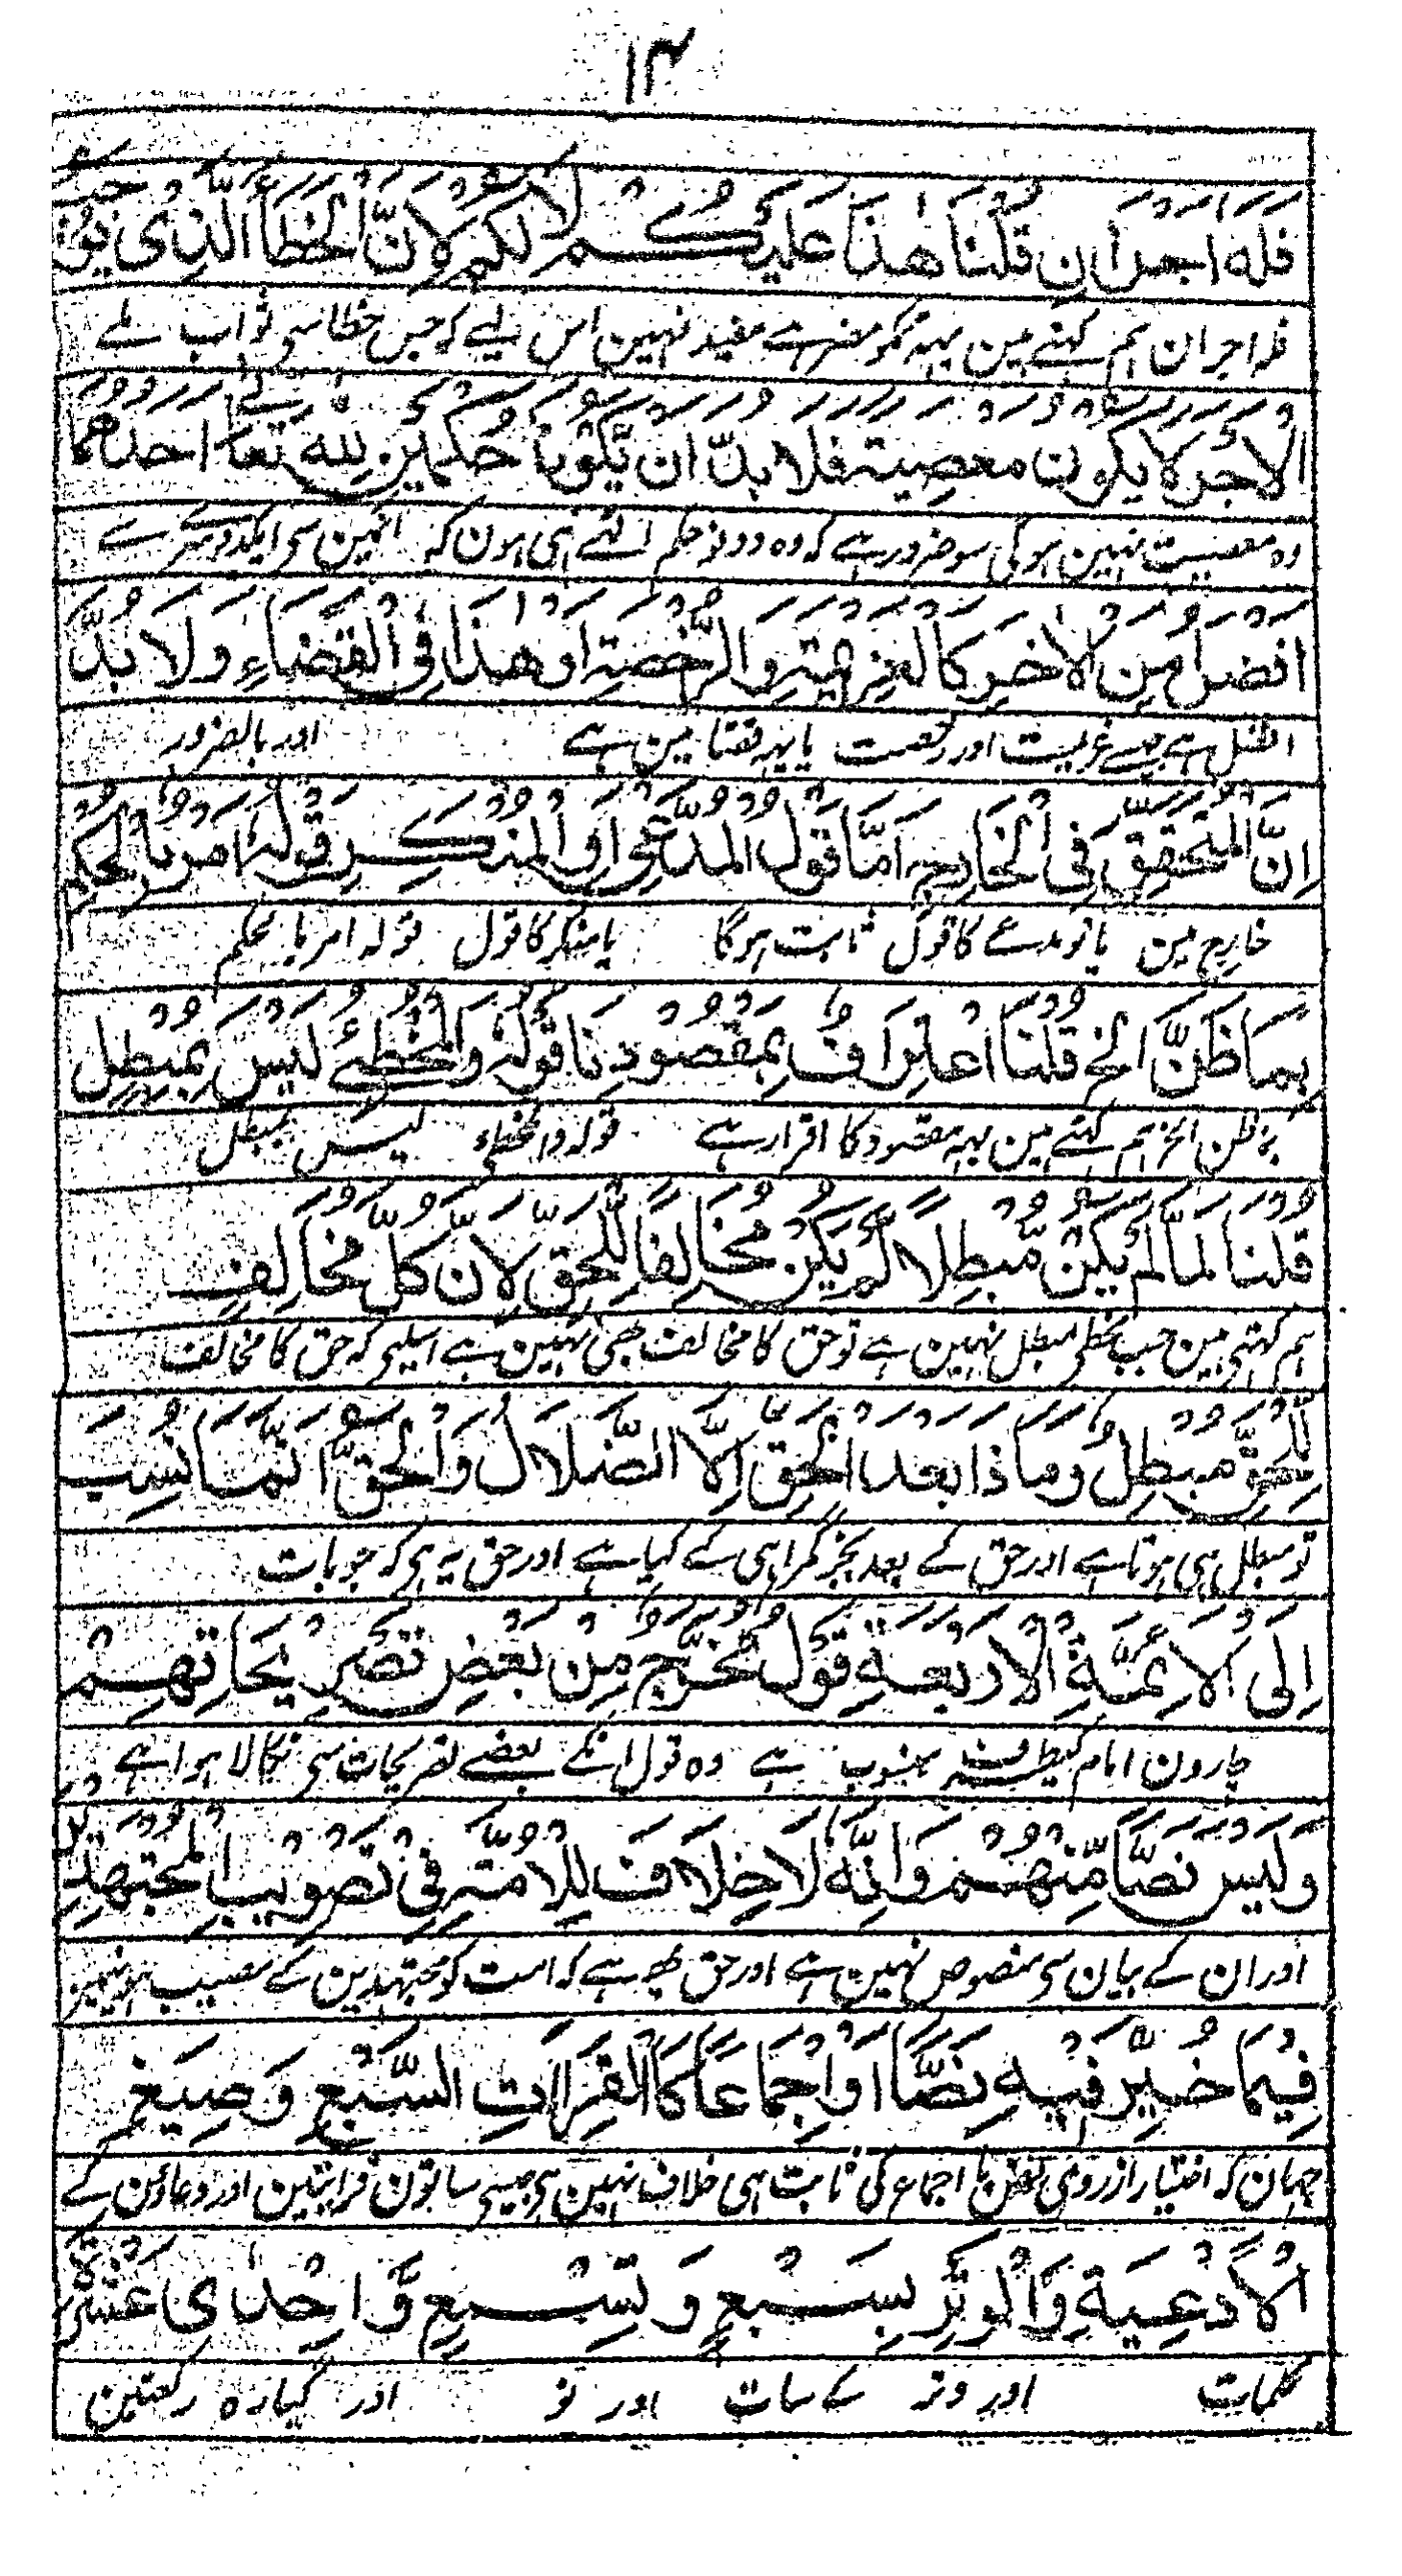 ١٣
فَلَهٗ اَجْرَانِ قُلْنَا هٰذَا عَلَيْكُمْ لَا لَكُمْ لِاَنَّ الْخَطَأَ الَّذِیْ
فلہ اجران ہم کہتے ہین یہہ تمکو مضر ہے مفید نہین اس لیے کہ جس خطا سی ثواب ملے
الْاَجْرَ لَا يَكُوْنُ مَعْصِيَةً فَلَا بُدَّ اَنْ يَّكُوْنَا حُكْمَيْنِ لِلّٰهِ تَعَا اَحَدُهُمَا
وہ معصیت نہین ہوگی سو ضرور ہے کہ وہ دونو حکم الٰہے ہی ہون کہ انمین سی ایک دوسرے سے
اَفْضَلُ مِنَ الْاٰخَرِ كَالْعَزِيْمَةِ وَالرُّخْصَةِ اَوْ هٰذَا فِی الْقَضَاءِ وَلَا بُدَّ
افضل ہے جیسے عزیمت اور رخصت یا یہہ قضا مین ہے اور بالضرور
اِنَّ الْمُتَحَقِّقَ فِی الْخَارِجِ اَمَّا قَوْلُ الْمُدَّعِیْ اَوِ الْمُنْكِرِ قَوْلُهٗ اُمِرَ بِالْحُكْمِ
خارج مین یا تو مدعے کا قول ثابت ہوگا یا منکر کا قول قولہ امر بالحکم
بِمَا ظَنَّ الخ قُلْنَا اعْتِرَافٌ بِمَقْصُوْدِنَا قَوْلُهٗ وَالْمُخْطِیُٔ لَيْسَ بِمُبْطِلٍ
بما ظن الخ ہم کہتے ہین یہہ مقصود کا اقرار ہے قولہ والمخطیء لیس بمبطل
قُلْنَا لَمَّا لَمْ يَكُنْ مُّبْطِلًا لَّمْ يَكُنْ مُخَالِفًا لِّلْحَقِّ لِاَنَّ كُلَّ مُخَالِفٍ
ہم کہتی ہین جب مخطی مبطل نہین ہے تو حق کا مخالف بھی نہین ہے اسلیی کہ حق کا مخالف
لِّلْحَقِّ مُبْطِلٌ وَمَا ذَا بَعْدَ الْحَقِّ اِلَّا الضَّلَالُ وَالْحَقُّ اَنَّ مَا نُسِبَ
تو مبطل ہی ہوتا ہے اور حق کے بعد بجز گمراہی کے کیا ہے اور حق یہ ہی کہ جو بات
اِلَى الْاَئِمَّةِ الْاَرْبَعَةِ قَوْلٌ مُخَرَّجٌ مِنْ بَعْضِ تَصْرِيْحَاتِهِمْ
چارون امام کیطرف منسوب ہے وہ قول انکے بعضے تصریحات سی نکالا ہوا ہے
وَلَيْسَ نَصًّا مِّنْهُمْ وَاِنَّهٗ لَا خِلَافَ لِلْاُمَّةِ فِیْ تَصْوِيْبِ الْمُجْتَهِدِيْنَ
اور ان کے بیان سی منصوص نہین ہے اور حق یہ ہے کہ امت کو مجتہدین کے مصیب ہونیمین
فِيْمَا خُيِّرَ فِيْهِ نَصًّا اَوْ اِجْمَاعًا كَالْقِرَاٰتِ السَّبْعِ وَصِيَغِ
جہان کہ اختیار ازروی نص یا اجماع کی ثابت ہی خلاف نہین ہی جیسی ساتون قرائتین اور دعاؤن کے
الْاَدْعِيَةِ وَالْوِتْرِ بِسَبْعٍ وَتِسْعٍ وَّاِحْدٰى عَشْرَةَ
کلمات اور وتر کے سات اور نو اور گیارہ رکعتین